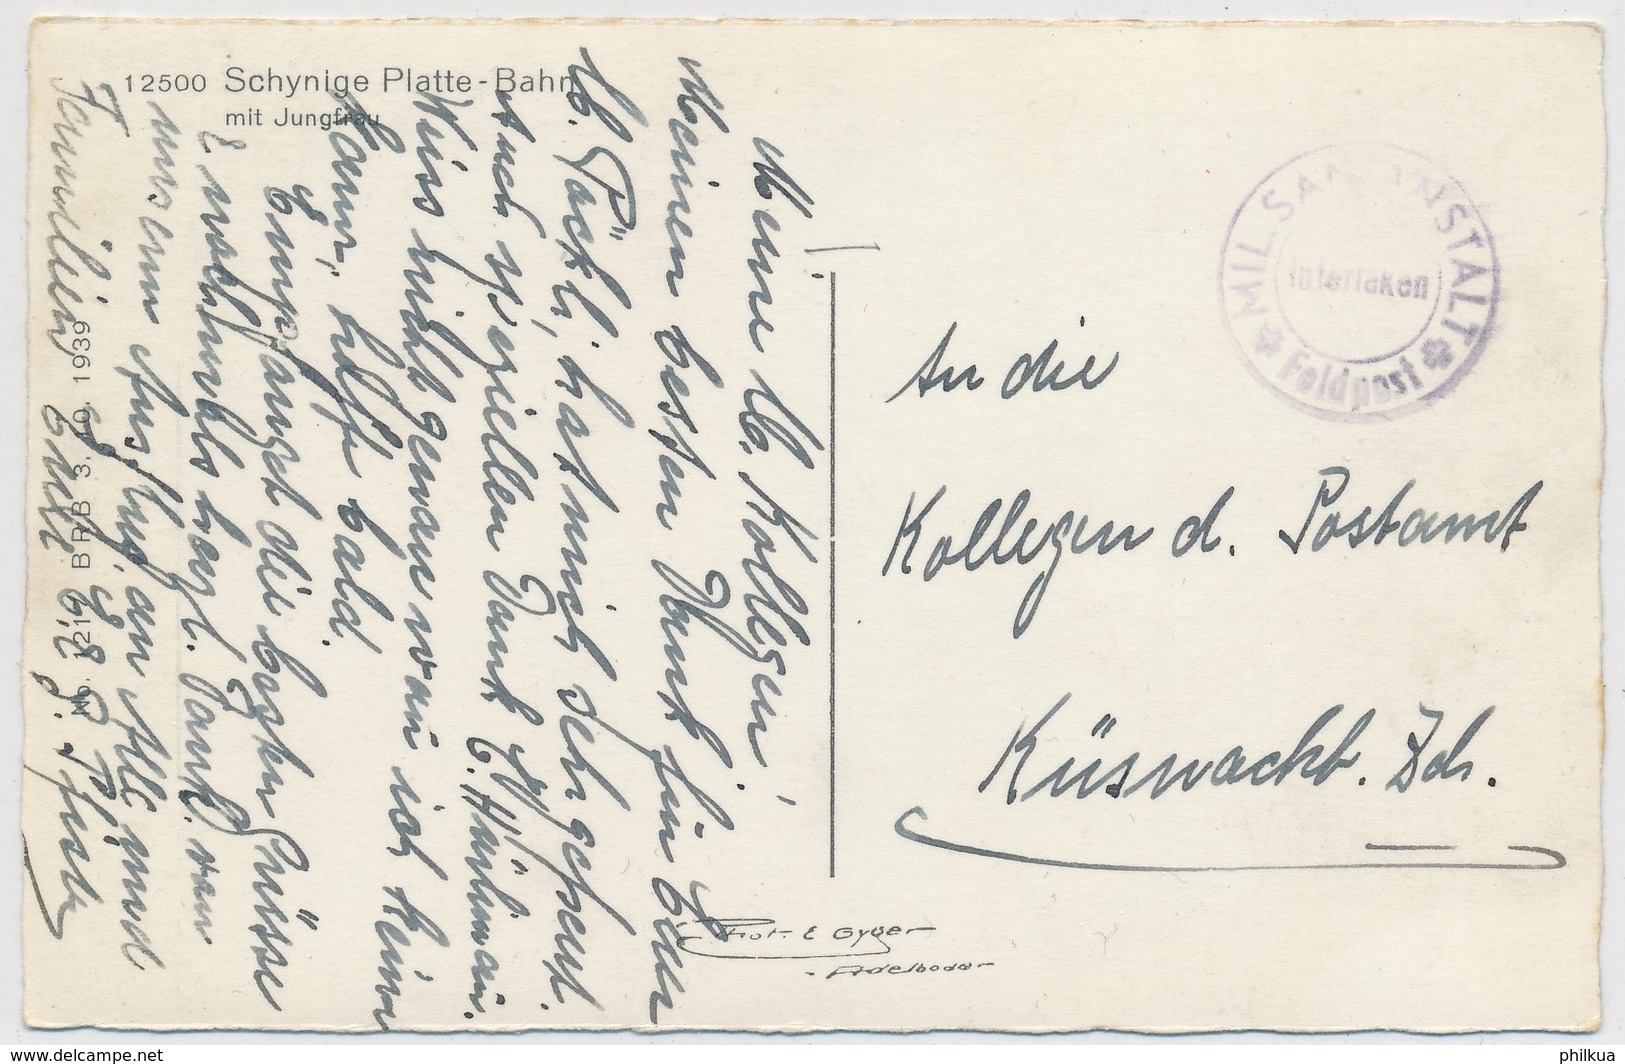 12500 Schynige Platte-Bahn
mit Jungfrau
No. 1216 BRB 3.10.1939
Meine lb. Kollegen!
Meinen besten Dank für Euer
lb. Päckli, hat mich sehr gefreut.
Auch speziellen Dank E. Hürlimann.
Weiss nicht genau wan ich heim
kann, hoffe bald.
Empfanget die besten Grüsse
& nochmals herzl. Dank. von
unserm Ausflug, an Alle und
Familien Euer
MIL. SAN. ANSTALT
Interlaken
Feldpost
An die
Kollegen d. Postamt
Küsnacht. Zch.
Phot. E. Gyger
Adelboden
philkua